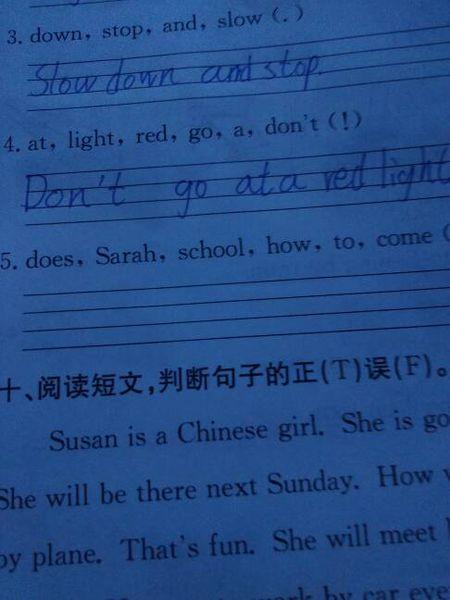 3. down, stop, and, slow (.)
Slow down and stop.
4. at, light, red, go, a, don't (!)
Don't go at a red light
5. does, Sarah, school, how, to, come (
十、阅读短文,判断句子的正(T)误(F)。
Susan is a Chinese girl. She is go
She will be there next Sunday. How
by plane. That's fun. She will meet
by car eve